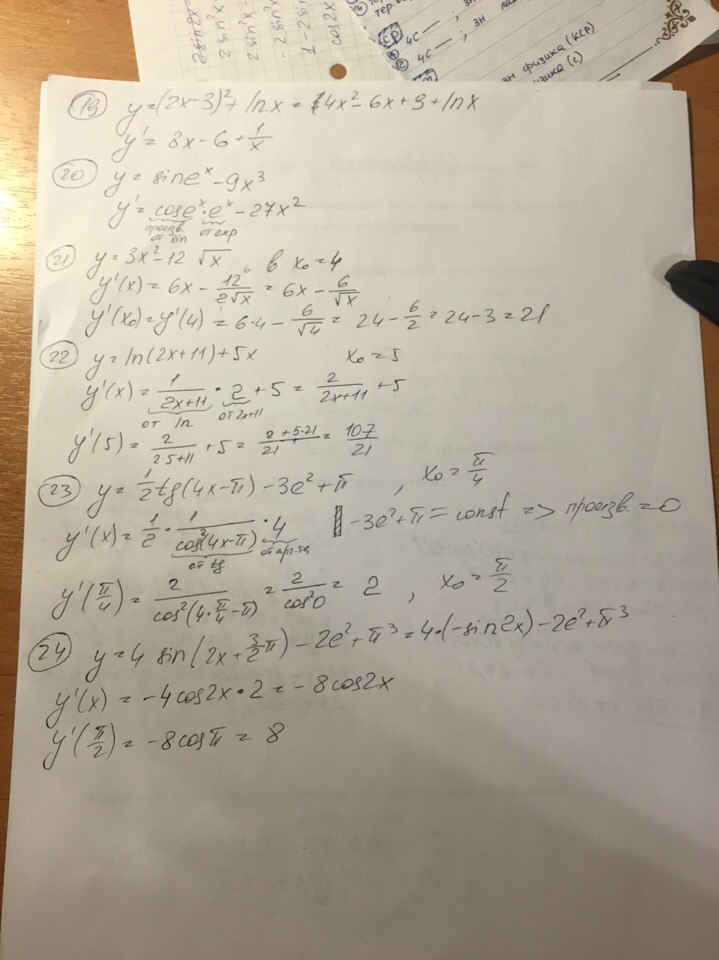 тер
КР
4С — ; зн
4С — , зн ла
зн физика (КСР)
изика (с)
19 y=(2x-3)²+lnx = 4x²-6x+9+lnx
y' = 8x-6+1/x
20 y = sine^x - 9x³
y' = cose^x · e^x - 27x²
произв. от sin от exp
21 y = 3x²-12 √x в x₀=4
y'(x) = 6x - 12/(2√x) 6 = 6x - 6/√x
y'(x₀)=y'(4) = 6·4 - 6/√4 = 24 - 6/2 = 24-3 = 21
22 y = ln(2x+11)+5x x₀=5
y'(x) = 1/(2x+11) · 2 + 5 = 2/(2x+11) + 5
от ln от 2x+11
y'(5) = 2/(2·5+11) + 5 = (2+5·21)/21 = 107/21
23 y = 1/2 tg(4x-π) - 3e²+π , x₀ = π/4
y'(x) = 1/2 · 1/(cos²(4x-π)) · 4 -3e²+π = const => произв. = 0
от tg от арг-та
y'(π/4) = 2/(cos²(4·π/4-π)) = 2/(cos²0) = 2 , x₀ = π/2
24 y = 4 sin(2x+3/2π) - 2e²+π³ = 4·(-sin2x) - 2e²+π³
y'(x) = -4cos2x·2 = -8cos2x
y'(π/2) = -8cosπ = 8